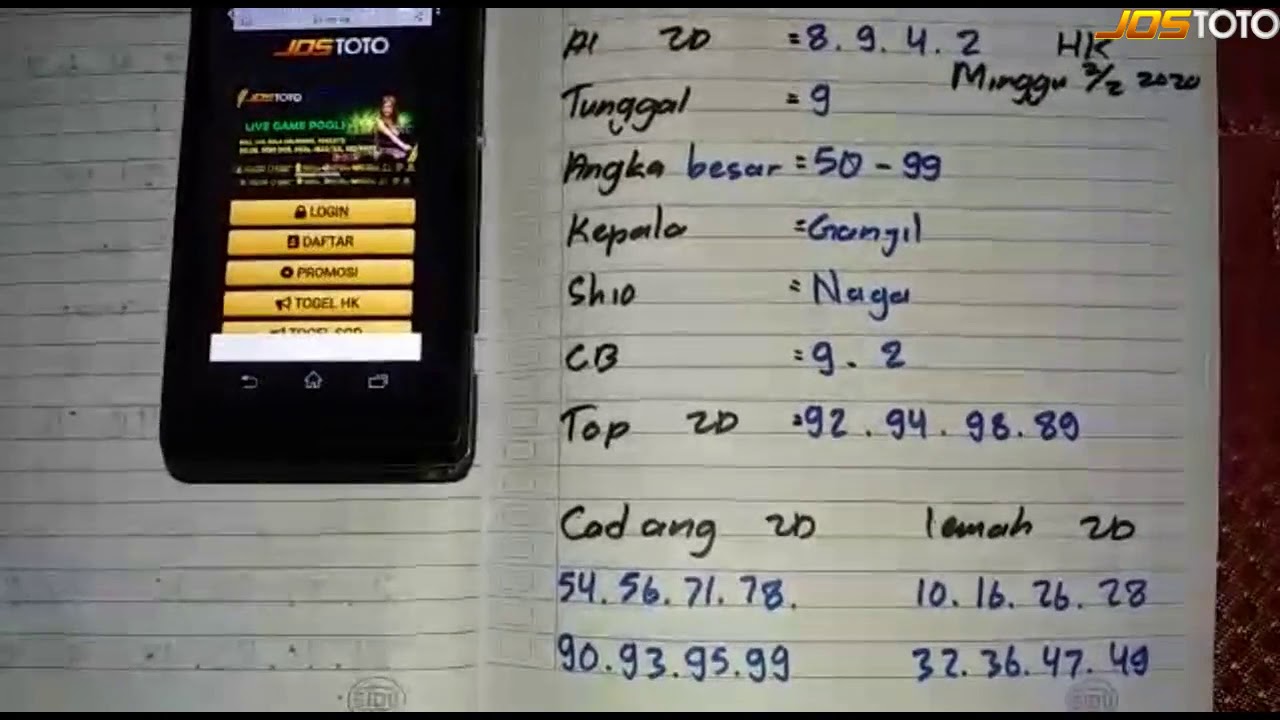 JOSTOTO
JOSTOTO
JOSTOTO
LIVE GAME POGLI
LOGIN
DAFTAR
PROMOSI
TOGEL HK
AI 2D = 8. 9. 4. 2 HK
Minggu 2/2 2020
Tunggal = 9
Angka besar = 50 - 99
Kepala = Ganjil
Shio = Naga
CB = 9. 2
Top 2D = 92. 94. 98. 89
Cadang 2D lemah 2D
54. 56. 71. 78. 10. 16. 26. 28
90. 93. 95. 99 32. 36. 47. 49
SIDU
SIDU